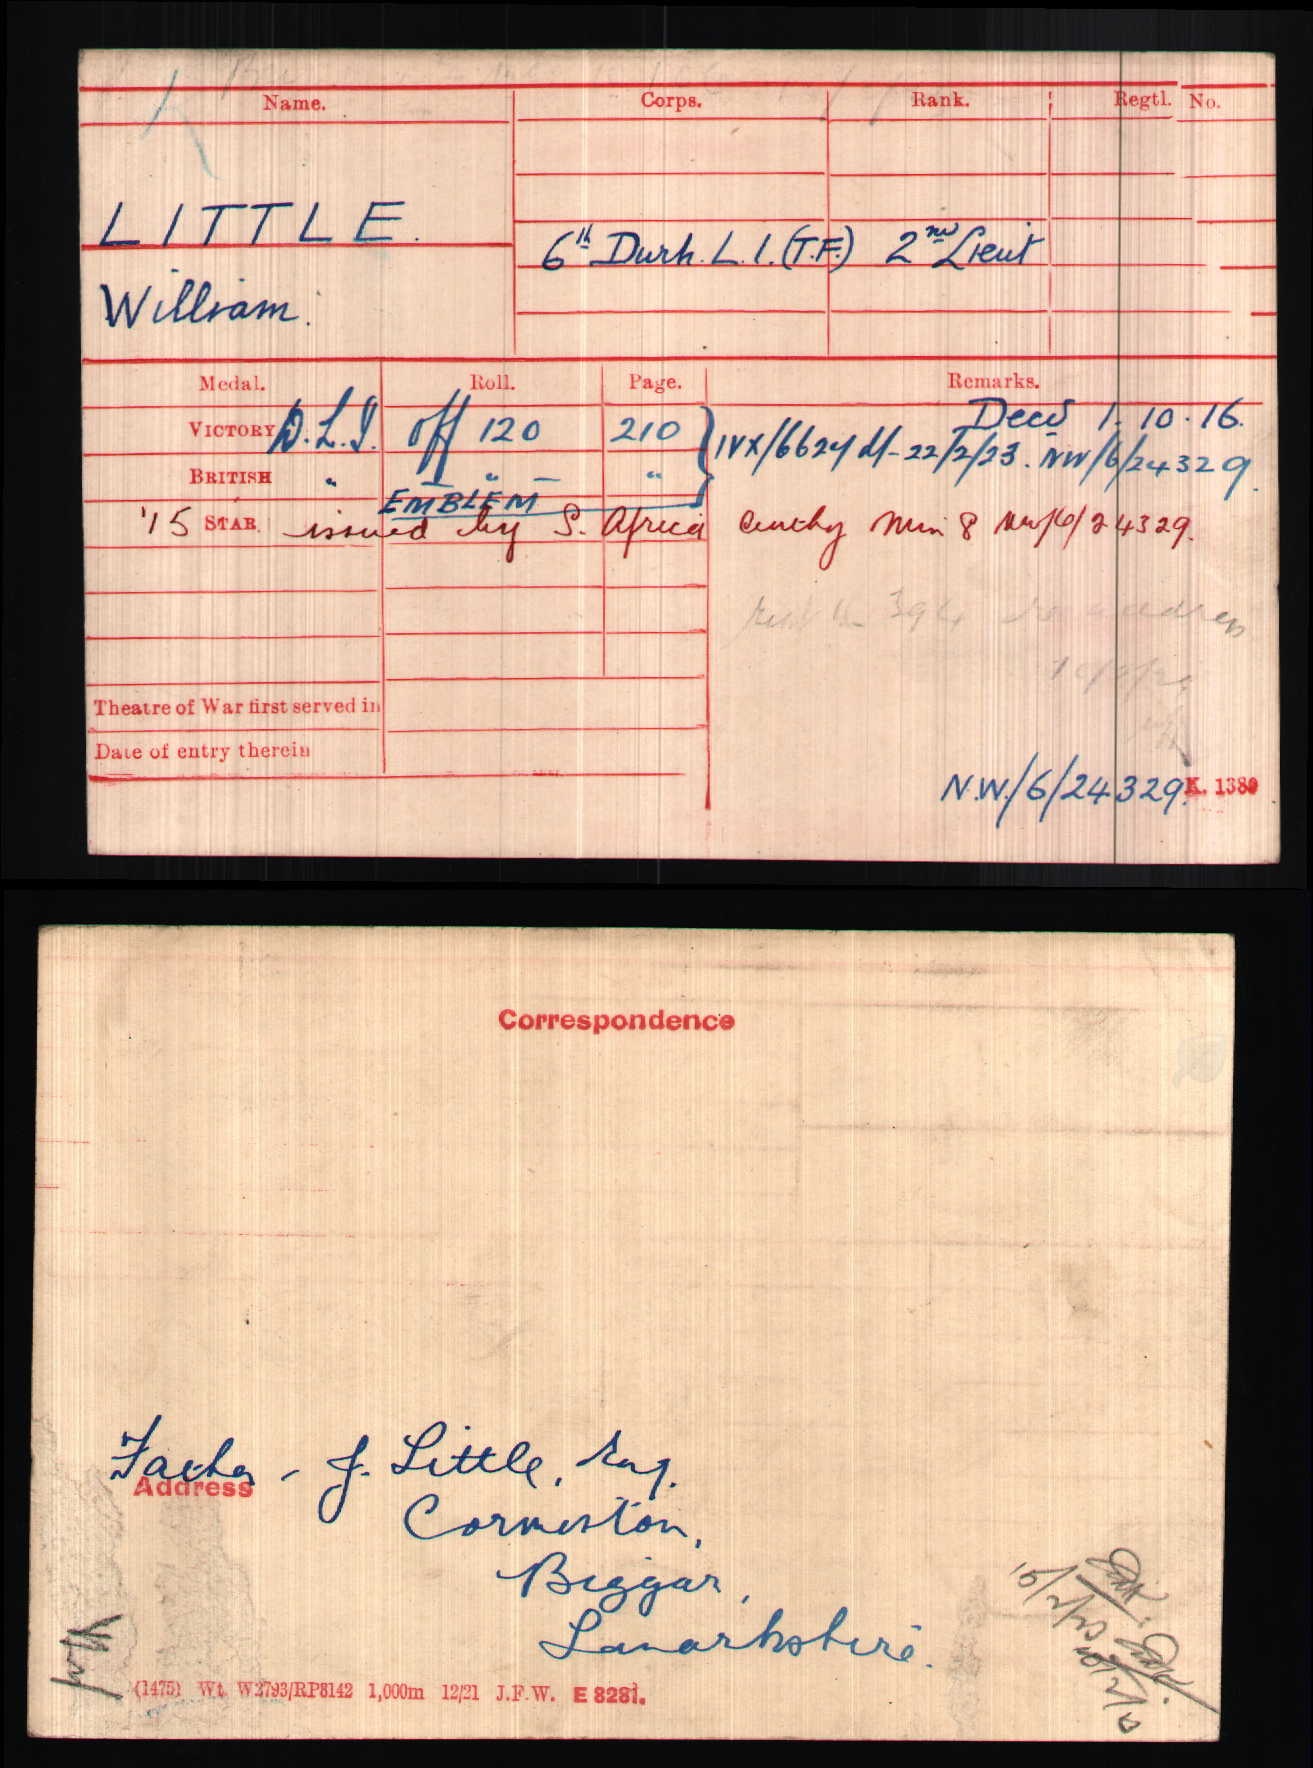 Name. Corps. Rank. Regtl. No.
LITTLE.
6th Durh. L.I. (T.F.) 2nd Lieut
William.
Medal. Roll. Page. Remarks.
Decd 1.10.16.
VICTORY D.L.I. Off 120 210 IVX/6624 d/- 22/2/23. NW/6/24329.
BRITISH " " "
EMBLEM
'15 STAR issued by S. Africa authy Min 8 NW/6/24329.
Theatre of War first served in
Date of entry therein
N.W./6/24329. K. 1380
Correspondence
Father - J. Little, Esq.
Address
Cormiston,
Biggar,
Lanarkshire.
(1475) Wt. W2793/RP8142 1,000m 12/21 J.F.W. E 8281.